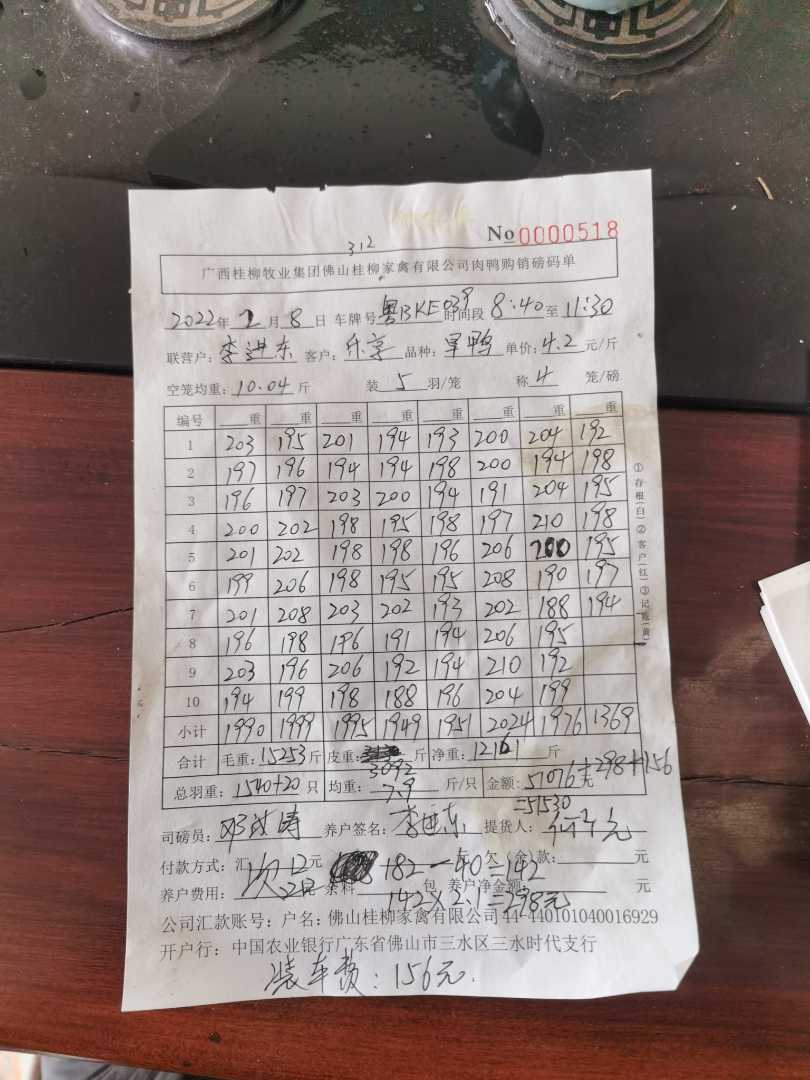 No 0000518
312
广西桂柳牧业集团佛山桂柳家禽有限公司肉鸭购销磅码单
2022年 2月 8日 车牌号 粤BKE039 时间段 8:40至11:30
联营户: 李进东 客户: 乐享 品种: 单价: 4.2元/斤
空笼均重: 10.04斤 装 5 羽/笼 称 4 笼/磅
编号 重 重 重 重 重 重 重 重
1 203 195 201 194 193 200 204 192
2 197 196 194 194 198 200 194 198
3 196 197 203 200 194 191 204 195
4 200 202 198 195 198 197 210 198
5 201 202 198 198 196 206 200 195
6 199 206 198 195 195 208 190 197
7 201 208 203 202 193 202 188 194
8 196 198 196 191 194 206 195
9 203 196 206 192 194 210 192
10 194 199 198 188 196 204 199
小计 1990 1999 1995 1949 1951 2024 1976 1369
合计 毛重: 15253斤 皮重: 3092 斤 净重: 12161 斤
总羽重: 1540+20 只 均重: 7.9 斤/只 金额: 51076元+298+156
=51530
司磅员: 养户签名: 李进东 提货人:
付款方式: 汇 12元 182-40=142 欠(余)款: 元
养户费用: 余料 包 养户净金额 元
142×2.1=298元
公司汇款账号: 户名: 佛山桂柳家禽有限公司 44-440101040016929
开户行: 中国农业银行广东省佛山市三水区三水时代支行
装车费: 156元.
①存根(白)②客户(红)③记账(黄)